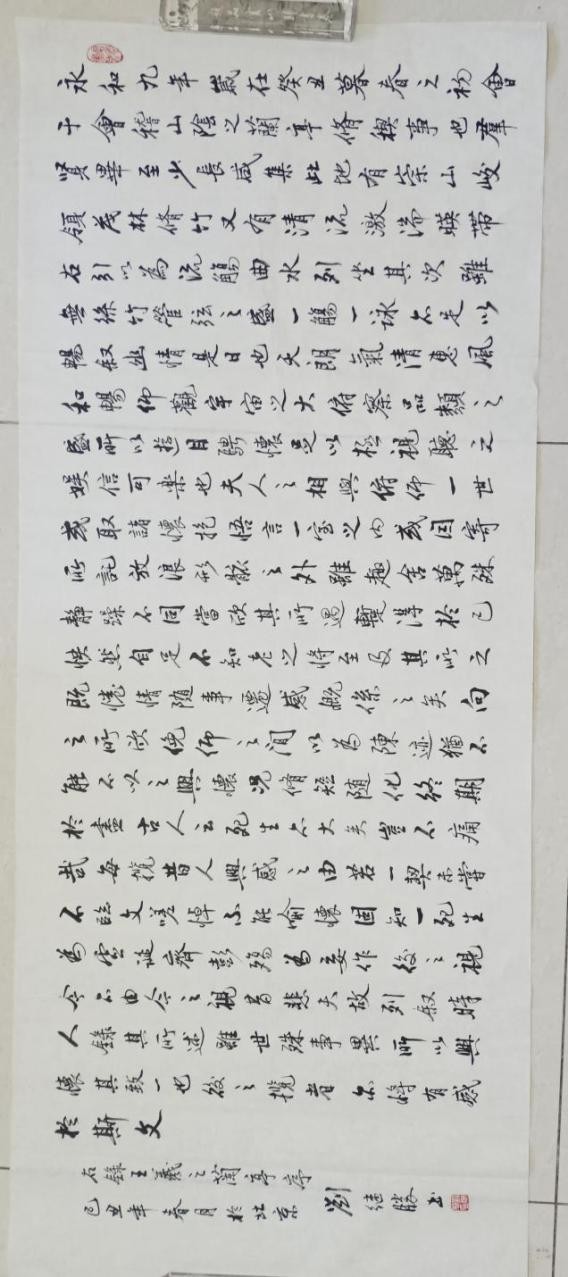 永和九年歲在癸丑暮春之初會
于會稽山陰之蘭亭脩稧事也羣
賢畢至少長咸集此地有崇山峻
領茂林脩竹又有清流激湍暎帶
右引以為流觴曲水列坐其次雖
無絲竹管弦之盛一觴一詠亦足以
暢敘幽情是日也天朗氣清惠風
和暢仰觀宇宙之大俯察品類之
盛所以遊目騁懷足以極視聽之
娛信可樂也夫人之相與俯仰一世
或取諸懷抱悟言一室之內或因寄
所託放浪形骸之外雖趣舍萬殊
靜躁不同當欣其所遇蹔得於己
快然自足不知老之將至及其所之
既惓情随事遷感慨係之矣向
之所欣俛仰之間以為陳迹猶不
能不以之興懷況脩短随化終期
於盡古人云死生亦大矣豈不痛
哉每攬昔人興感之由若一契未嘗
不臨文嗟悼不能喻懷固知一死生
為虛誕齊彭殤為妄作後之視
今亦由今之視昔悲夫故列敘時
人錄其所述雖世殊事異所以興
懷其致一也後之攬者亦將有感
於斯文
右錄王羲之蘭亭序
己丑年春月於北京 劉继勝书